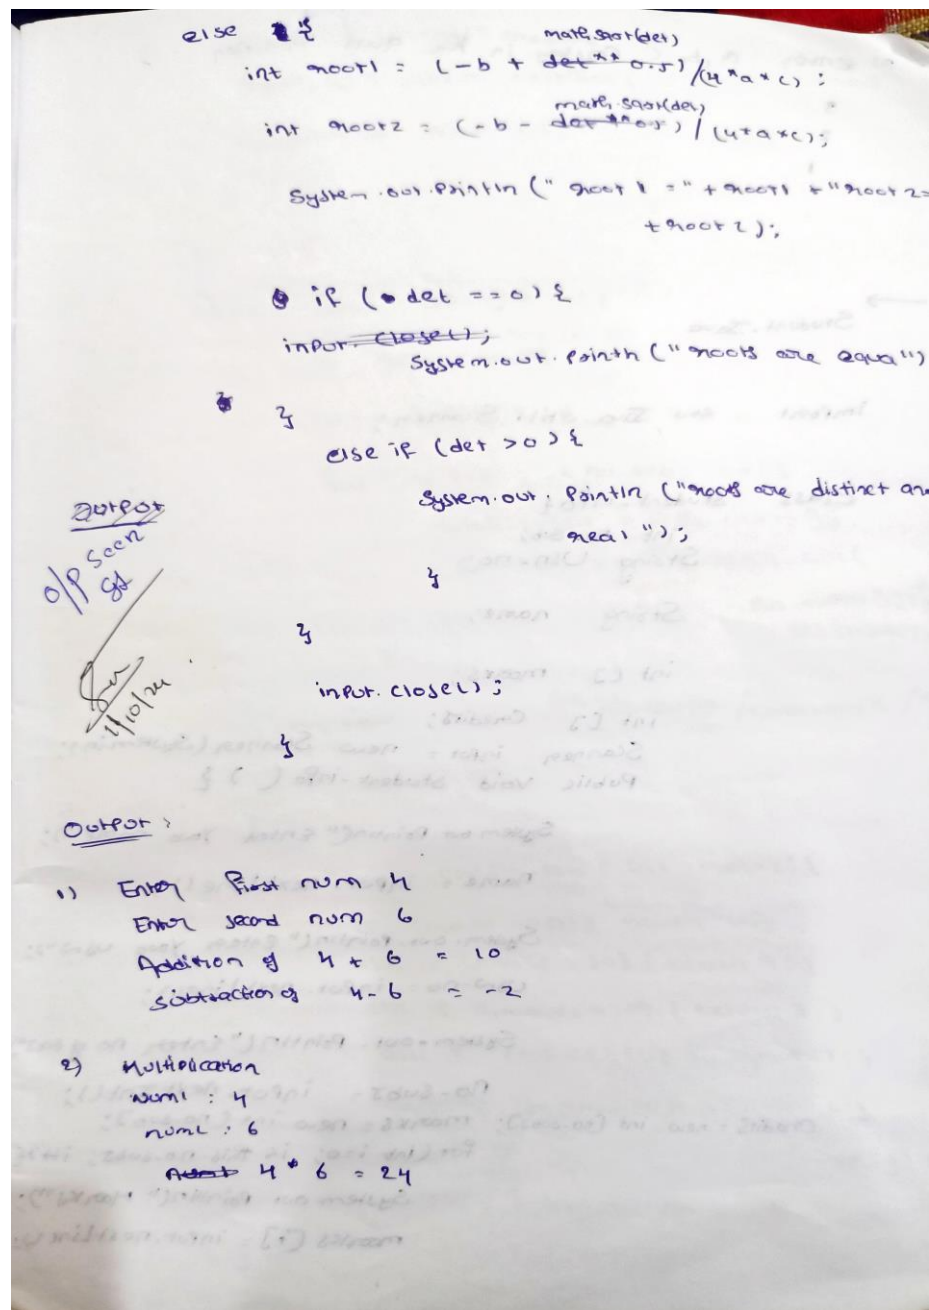 else {
math.sqrt(det)
int root1 = (-b + det** 0.5) / (4*a*c) ;
math.sqrt(det)
int root2 = (-b - det **0.5) / (4*a*c);
System.out.println (" root 1 =" + root1 + "root 2=
+root 2 );
if ( det == 0) {
input. close();
System.out. println (" roots are equal")
}
else if (det > 0) {
System.out. println ("roots are distinct an
real ");
}
Output
O/P seen
}
1/10/24
input. close() ;
}
Output :
1) Enter first num 4
Enter second num 6
Addition of 4 + 6 = 10
subtraction of 4 - 6 = -2
2) Multiplication
num1 : 4
num2 : 6
4 * 6 = 24